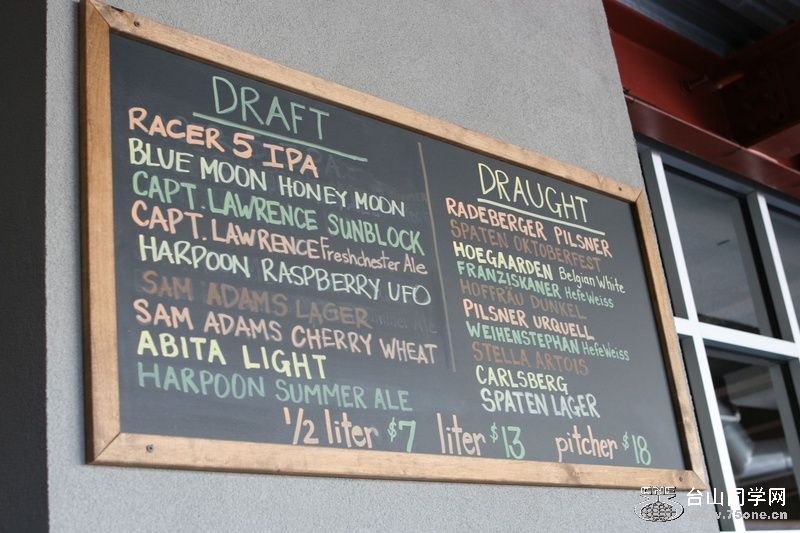 DRAFT
RACER 5 IPA
BLUE MOON HONEY MOON
CAPT. LAWRENCE SUNBLOCK
CAPT. LAWRENCE Freshchester Ale
HARPOON RASPBERRY UFO
SAM ADAMS LAGER
SAM ADAMS CHERRY WHEAT
ABITA LIGHT
HARPOON SUMMER ALE
DRAUGHT
RADEBERGER PILSNER
SPATEN OKTOBERFEST
HOEGAARDEN Belgian White
FRANZISKANER HefeWeiss
HOFFRÄU DUNKEL
PILSNER URQUELL
WEIHENSTEPHAN HefeWeiss
STELLA ARTOIS
CARLSBERG
SPATEN LAGER
1/2 liter $7 liter $13 pitcher $18
台山同学网
www.75one.cn